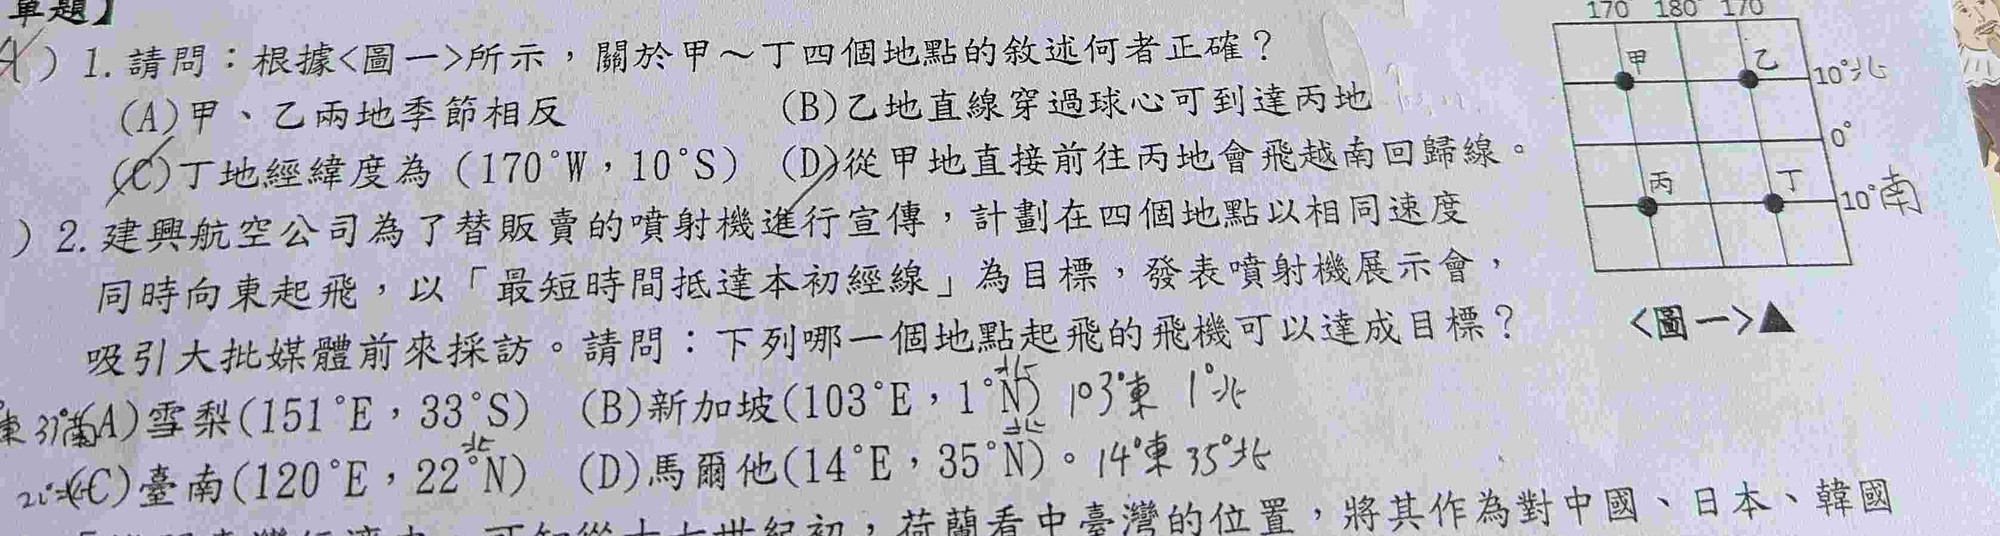 單題】
170 180 170
) 1. 請問：根據<圖一>所示，關於甲～丁四個地點的敘述何者正確？
(A)甲、乙兩地季節相反 (B)乙地直線穿過球心可到達丙地
(C)丁地經緯度為（170°W，10°S） (D)從甲地直接前往丙地會飛越南回歸線。
甲 乙 10°北
0°
丙 丁 10°南
<圖一>▲
) 2. 建興航空公司為了替販賣的噴射機進行宣傳，計劃在四個地點以相同速度
同時向東起飛，以「最短時間抵達本初經線」為目標，發表噴射機展示會，
吸引大批媒體前來採訪。請問：下列哪一個地點起飛的飛機可以達成目標？
東 33°南(A)雪梨(151°E，33°S) (B)新加坡(103°E，1°N) 北 103°東 1°北
(C)臺南(120°E，22°N) 北 (D)馬爾他(14°E，35°N)。 北 14°東 35°北
荷蘭看中臺灣的位置，將其作為對中國、日本、韓國